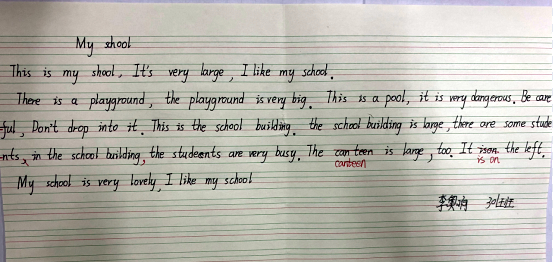 My shool
This is my shool, It's very large, I like my school.
There is a playground, the playground is very big. This is a pool, it is very dangerous. Be care
-ful, Don't drop into it. This is the school building. the school building is large, there are some stude
nts, in the school building, the students are very busy. The can teen is large, too. It ison the left.
canteen is on
My school is very lovely, I like my school